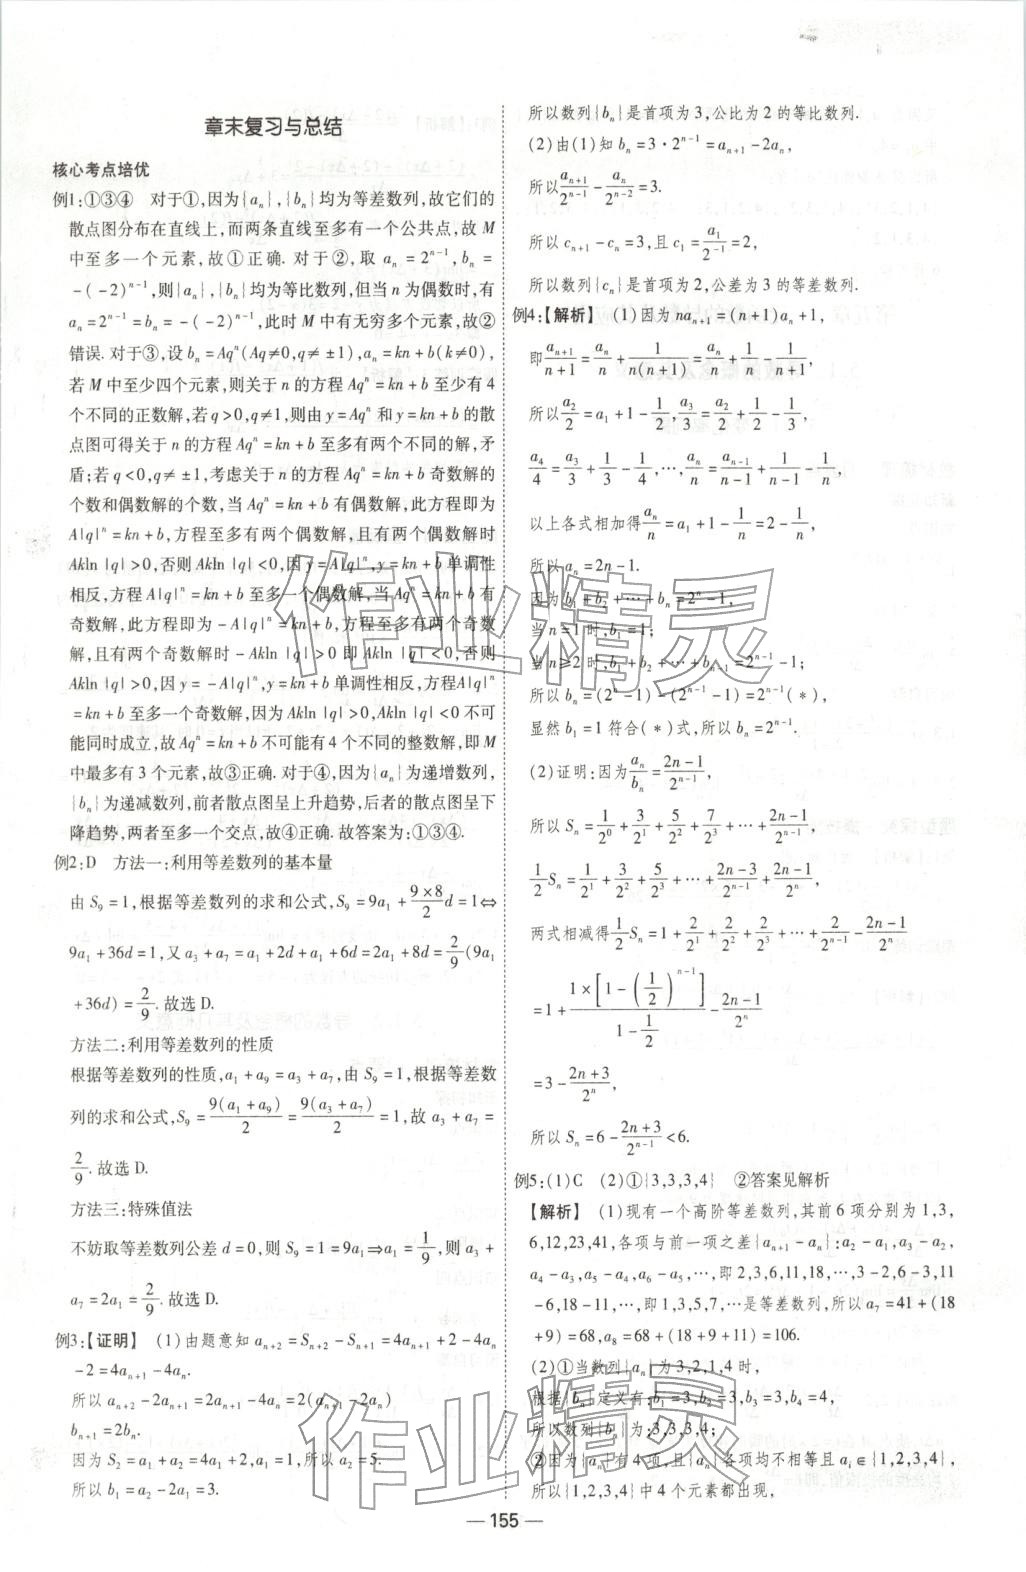 章末复习与总结
核心考点培优
例1:①③④　对于①,因为{aₙ},{bₙ}均为等差数列,故它们的
散点图分布在直线上,而两条直线至多有一个公共点,故 M
中至多一个元素,故①正确. 对于②,取 aₙ=2ⁿ⁻¹,bₙ=
-(-2)ⁿ⁻¹,则{aₙ},{bₙ}均为等比数列,但当 n 为偶数时,有
aₙ=2ⁿ⁻¹=bₙ=-(-2)ⁿ⁻¹,此时 M 中有无穷多个元素,故②
错误. 对于③,设 bₙ=Aqⁿ(Aq≠0,q≠±1),aₙ=kn+b(k≠0),
若 M 中至少四个元素,则关于 n 的方程 Aqⁿ=kn+b 至少有 4
个不同的正数解,若 q>0,q≠1,则由 y=Aqⁿ和 y=kn+b 的散
点图可得关于 n 的方程 Aqⁿ=kn+b 至多有两个不同的解,矛
盾;若 q<0,q≠±1,考虑关于 n 的方程 Aqⁿ=kn+b 奇数解的
个数和偶数解的个数,当 Aqⁿ=kn+b 有偶数解,此方程即为
A|q|ⁿ=kn+b,方程至多有两个偶数解,且有两个偶数解时
Akln |q|>0,否则 Akln |q|<0,因 y=A|q|ⁿ,y=kn+b 单调性
相反,方程 A|q|ⁿ=kn+b 至多一个偶数解,当 Aqⁿ=kn+b 有
奇数解,此方程即为-A|q|ⁿ=kn+b,方程至多有两个奇数
解,且有两个奇数解时-Akln |q|>0 即 Akln |q|<0,否则
Akln |q|>0,因 y=-A|q|ⁿ,y=kn+b 单调性相反,方程A|q|ⁿ
=kn+b 至多一个奇数解,因为 Akln |q|>0,Akln |q|<0 不可
能同时成立,故 Aqⁿ=kn+b 不可能有 4 个不同的整数解,即 M
中最多有 3 个元素,故③正确. 对于④,因为{aₙ}为递增数列,
{bₙ}为递减数列,前者散点图呈上升趋势,后者的散点图呈下
降趋势,两者至多一个交点,故④正确. 故答案为:①③④.
例2:D　方法一:利用等差数列的基本量
由 S₉=1,根据等差数列的求和公式,S₉=9a₁+(9×8)/2 d=1⇔
9a₁+36d=1,又 a₃+a₇=a₁+2d+a₁+6d=2a₁+8d=2/9(9a₁
+36d)=2/9. 故选 D.
方法二:利用等差数列的性质
根据等差数列的性质,a₁+a₉=a₃+a₇,由 S₉=1,根据等差数
列的求和公式,S₉=9(a₁+a₉)/2=9(a₃+a₇)/2=1,故 a₃+a₇=
2/9. 故选 D.
方法三:特殊值法
不妨取等差数列公差 d=0,则 S₉=1=9a₁⇒a₁=1/9,则 a₃+
a₇=2a₁=2/9. 故选 D.
例3:【证明】　(1)由题意知 aₙ₊₂=Sₙ₊₂-Sₙ₊₁=4aₙ₊₁+2-4aₙ
-2=4aₙ₊₁-4aₙ.
所以 aₙ₊₂-2aₙ₊₁=2aₙ₊₁-4aₙ=2(aₙ₊₁-2aₙ)
bₙ₊₁=2bₙ.
因为 S₂=a₁+a₂=4a₁+2,a₁=2,所以 a₂=5.
所以 b₁=a₂-2a₁=3.
所以数列{bₙ}是首项为 3,公比为 2 的等比数列.
(2)由(1)知 bₙ=3·2ⁿ⁻¹=aₙ₊₁-2aₙ,
所以 aₙ₊₁/2ⁿ⁻¹-aₙ/2ⁿ⁻²=3.
所以 cₙ₊₁-cₙ=3,且 c₁=a₁/2⁻¹=2,
所以数列{cₙ}是首项为 2,公差为 3 的等差数列.
例4:【解析】　(1)因为 naₙ₊₁=(n+1)aₙ+1,
即aₙ₊₁/(n+1)=aₙ/n+1/n-1/(n+1),
所以a₂/2=a₁+1-1/2,a₃/3=a₂/2+1/2-1/3,
a₄/4=a₃/3+1/3-1/4,…,aₙ/n=aₙ₋₁/(n-1)+1/(n-1)-1/n,
以上各式相加得aₙ/n=a₁+1-1/n=2-1/n,
所以 aₙ=2n-1.
因为 b₁+b₂+…+bₙ=2ⁿ-1,
当 n=1 时,b₁=1;
当 n≥2 时,b₁+b₂+…+bₙ₋₁=2ⁿ⁻¹-1;
所以 bₙ=(2ⁿ-1)-(2ⁿ⁻¹-1)=2ⁿ⁻¹(*),
显然 b₁=1 符合(*)式,所以 bₙ=2ⁿ⁻¹.
(2)证明:因为aₙ/bₙ=(2n-1)/2ⁿ⁻¹,
所以 Sₙ=1/2⁰+3/2¹+5/2²+7/2³+…+(2n-1)/2ⁿ⁻¹,
1/2 Sₙ=1/2¹+3/2²+5/2³+…+(2n-3)/2ⁿ⁻¹+(2n-1)/2ⁿ,
两式相减得1/2 Sₙ=1+2/2¹+2/2²+2/2³+…+2/2ⁿ⁻¹-(2n-1)/2ⁿ
=1+1×[1-(1/2)ⁿ⁻¹]/(1-1/2)-(2n-1)/2ⁿ
=3-(2n+3)/2ⁿ,
所以 Sₙ=6-(2n+3)/2ⁿ⁻¹<6.
例5:(1)C　(2)①{3,3,3,4}　②答案见解析
【解析】　(1)现有一个高阶等差数列,其前 6 项分别为 1,3,
6,12,23,41,各项与前一项之差{aₙ₊₁-aₙ}:a₂-a₁,a₃-a₂,
a₄-a₃,a₅-a₄,a₆-a₅,…,即 2,3,6,11,18,…,3-2,6-3,11
-6,18-11,…,即 1,3,5,7,…是等差数列,所以 a₇=41+(18
+9)=68,a₈=68+(18+9+11)=106.
(2)①当数列{aₙ}为 3,2,1,4 时,
根据{bₙ}定义有:b₁=3,b₂=3,b₃=3,b₄=4,
所以数列{bₙ}为:3,3,3,4;
②因为{aₙ}有 4 项,且{aₙ}各项均不相等且 aᵢ∈{1,2,3,4},
所以{1,2,3,4}中 4 个元素都出现,
— 155 —
作业精灵
作业精灵